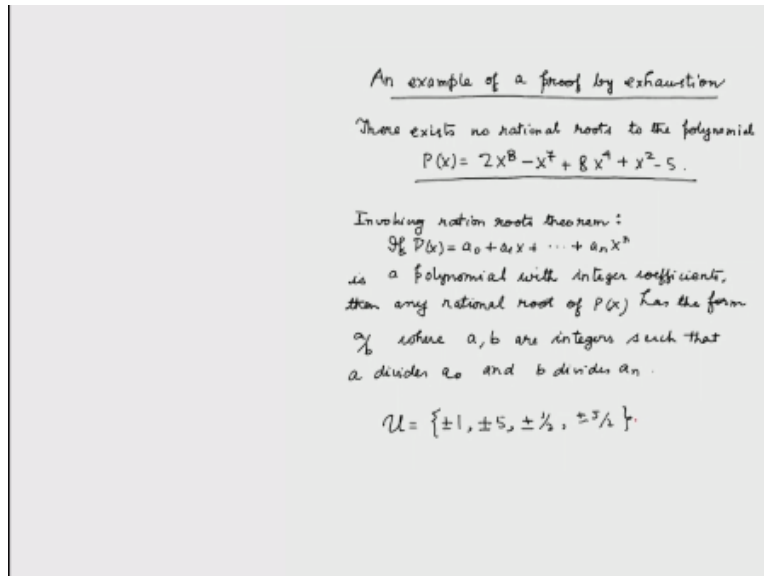 An example of a proof by exhaustion
There exists no rational roots to the polynomial
P(x) = 2x⁸ - x⁷ + 8x⁴ + x² - 5.
Invoking ration roots theorem :
If P(x) = a₀ + a₁x + ⋯ + aₙxⁿ
is a polynomial with integer coefficients,
then any rational root of P(x) has the form
a/b where a, b are integers such that
a divides a₀ and b divides aₙ.
U = {±1, ±5, ±1/2, ±5/2}.